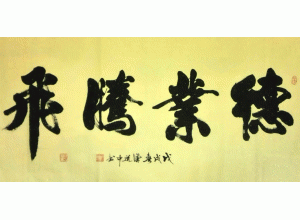 德業騰飛
戊戌春